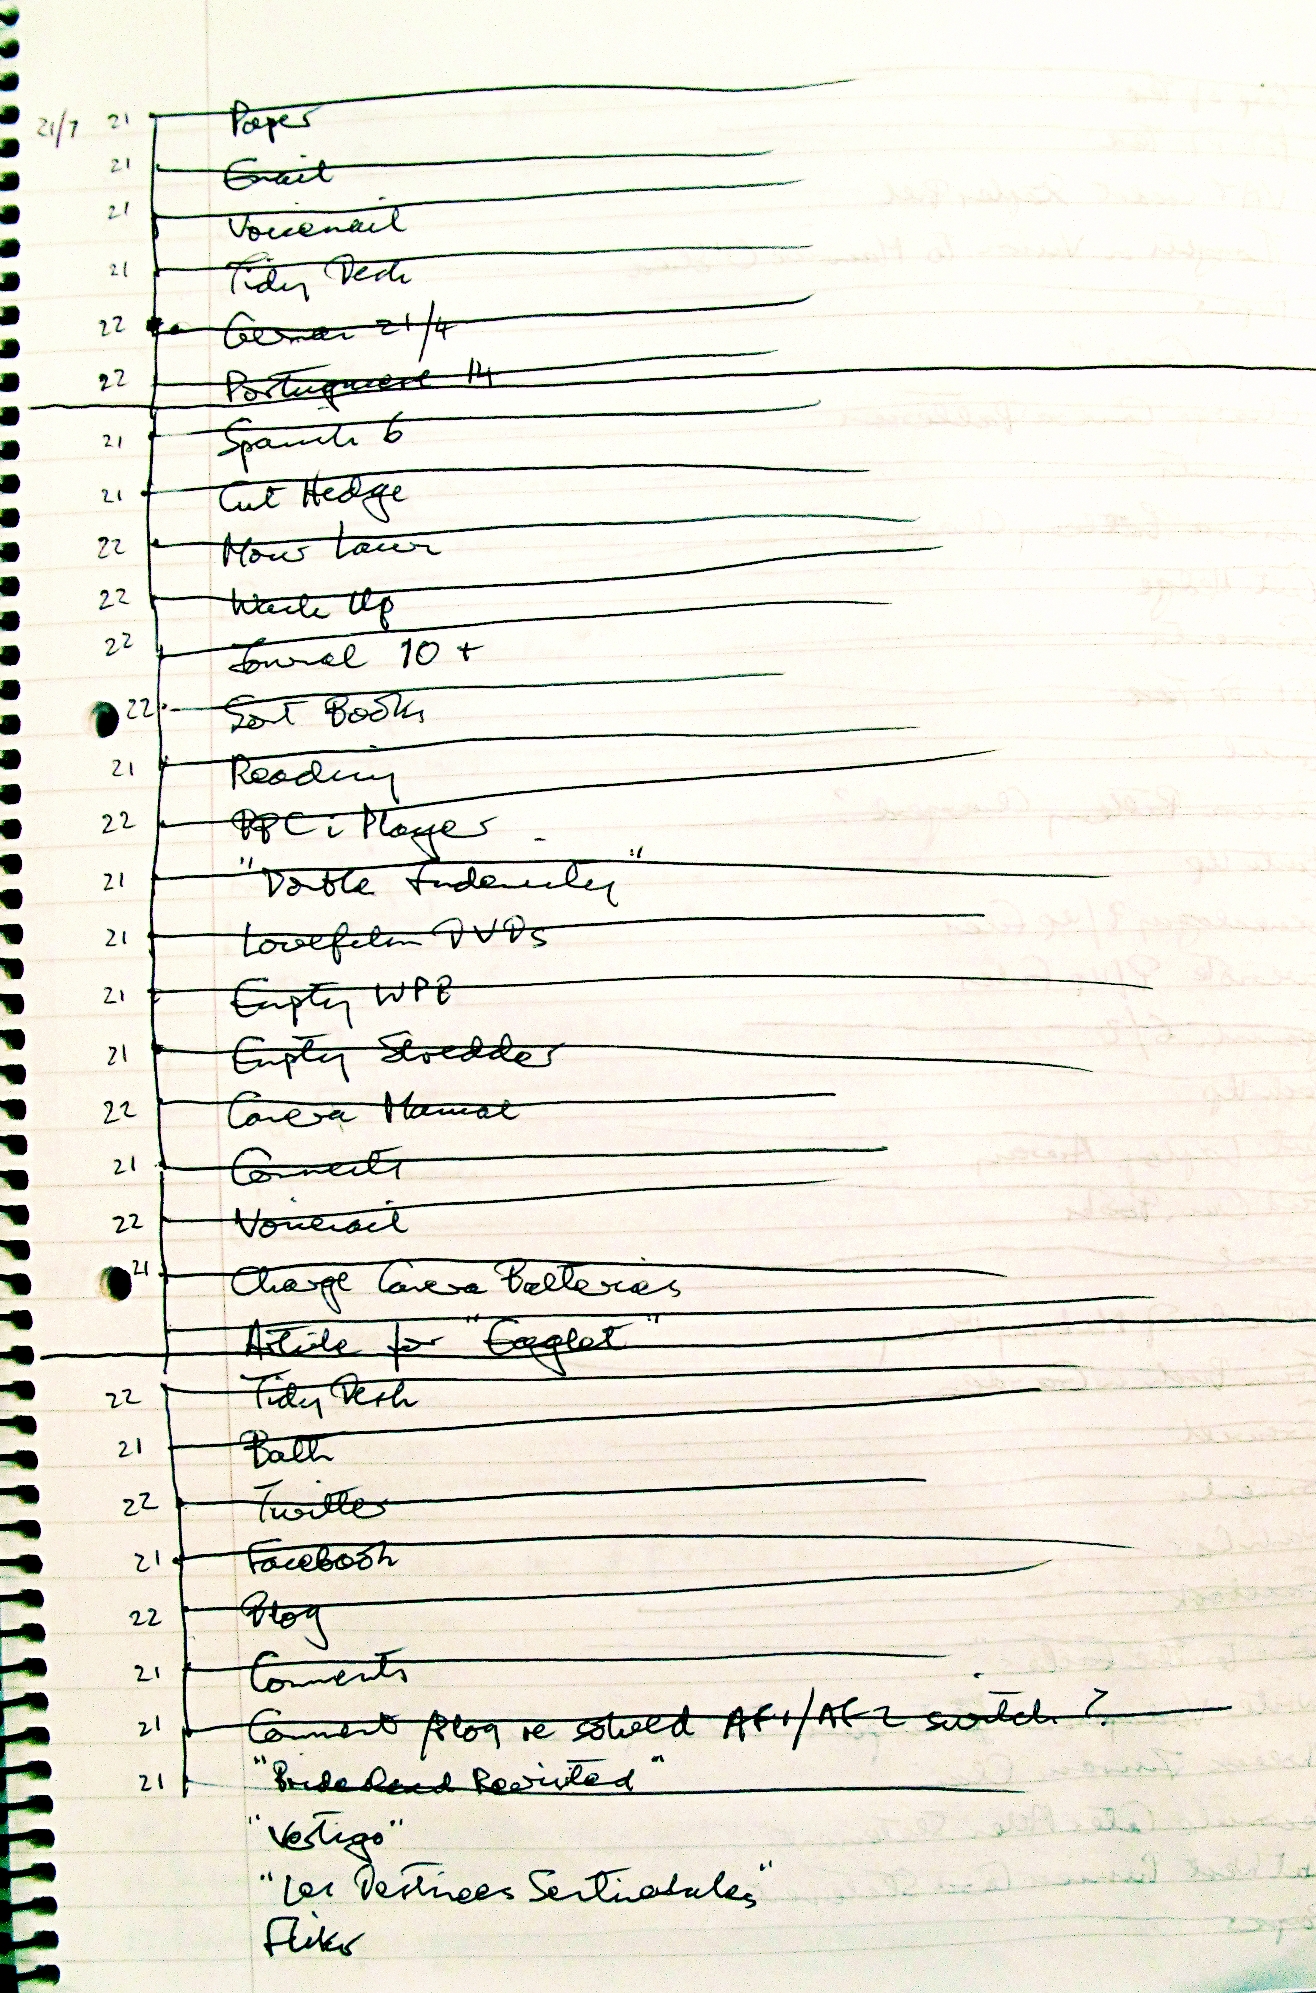 21/7 21 Paper
21 Email
21 Voicemail
21 Tidy Desk
22 German 21/4
22 Portuguese 14
21 Spanish 6
21 Cut Hedge
22 Mow Lawn
22 Wash Up
22 Journal 10 +
22 Sort Books
21 Reading
22 BBC iPlayer
21 "Double Indemnity"
21 Lovefilm DVDs
21 Empty WPB
21 Empty Shredder
22 Camera Manual
21 Comments
22 Voicemail
21 Charge Camera Batteries
Article for "Eaglet"
22 Tidy Desk
21 Bath
22 Twitter
21 Facebook
22 Blog
21 Comments
21 Comment Blog re solved AF1/AF2 switch?
21 "Brideshead Revisited"
"Vertigo"
"Les Destinees Sentimentales"
Flikr